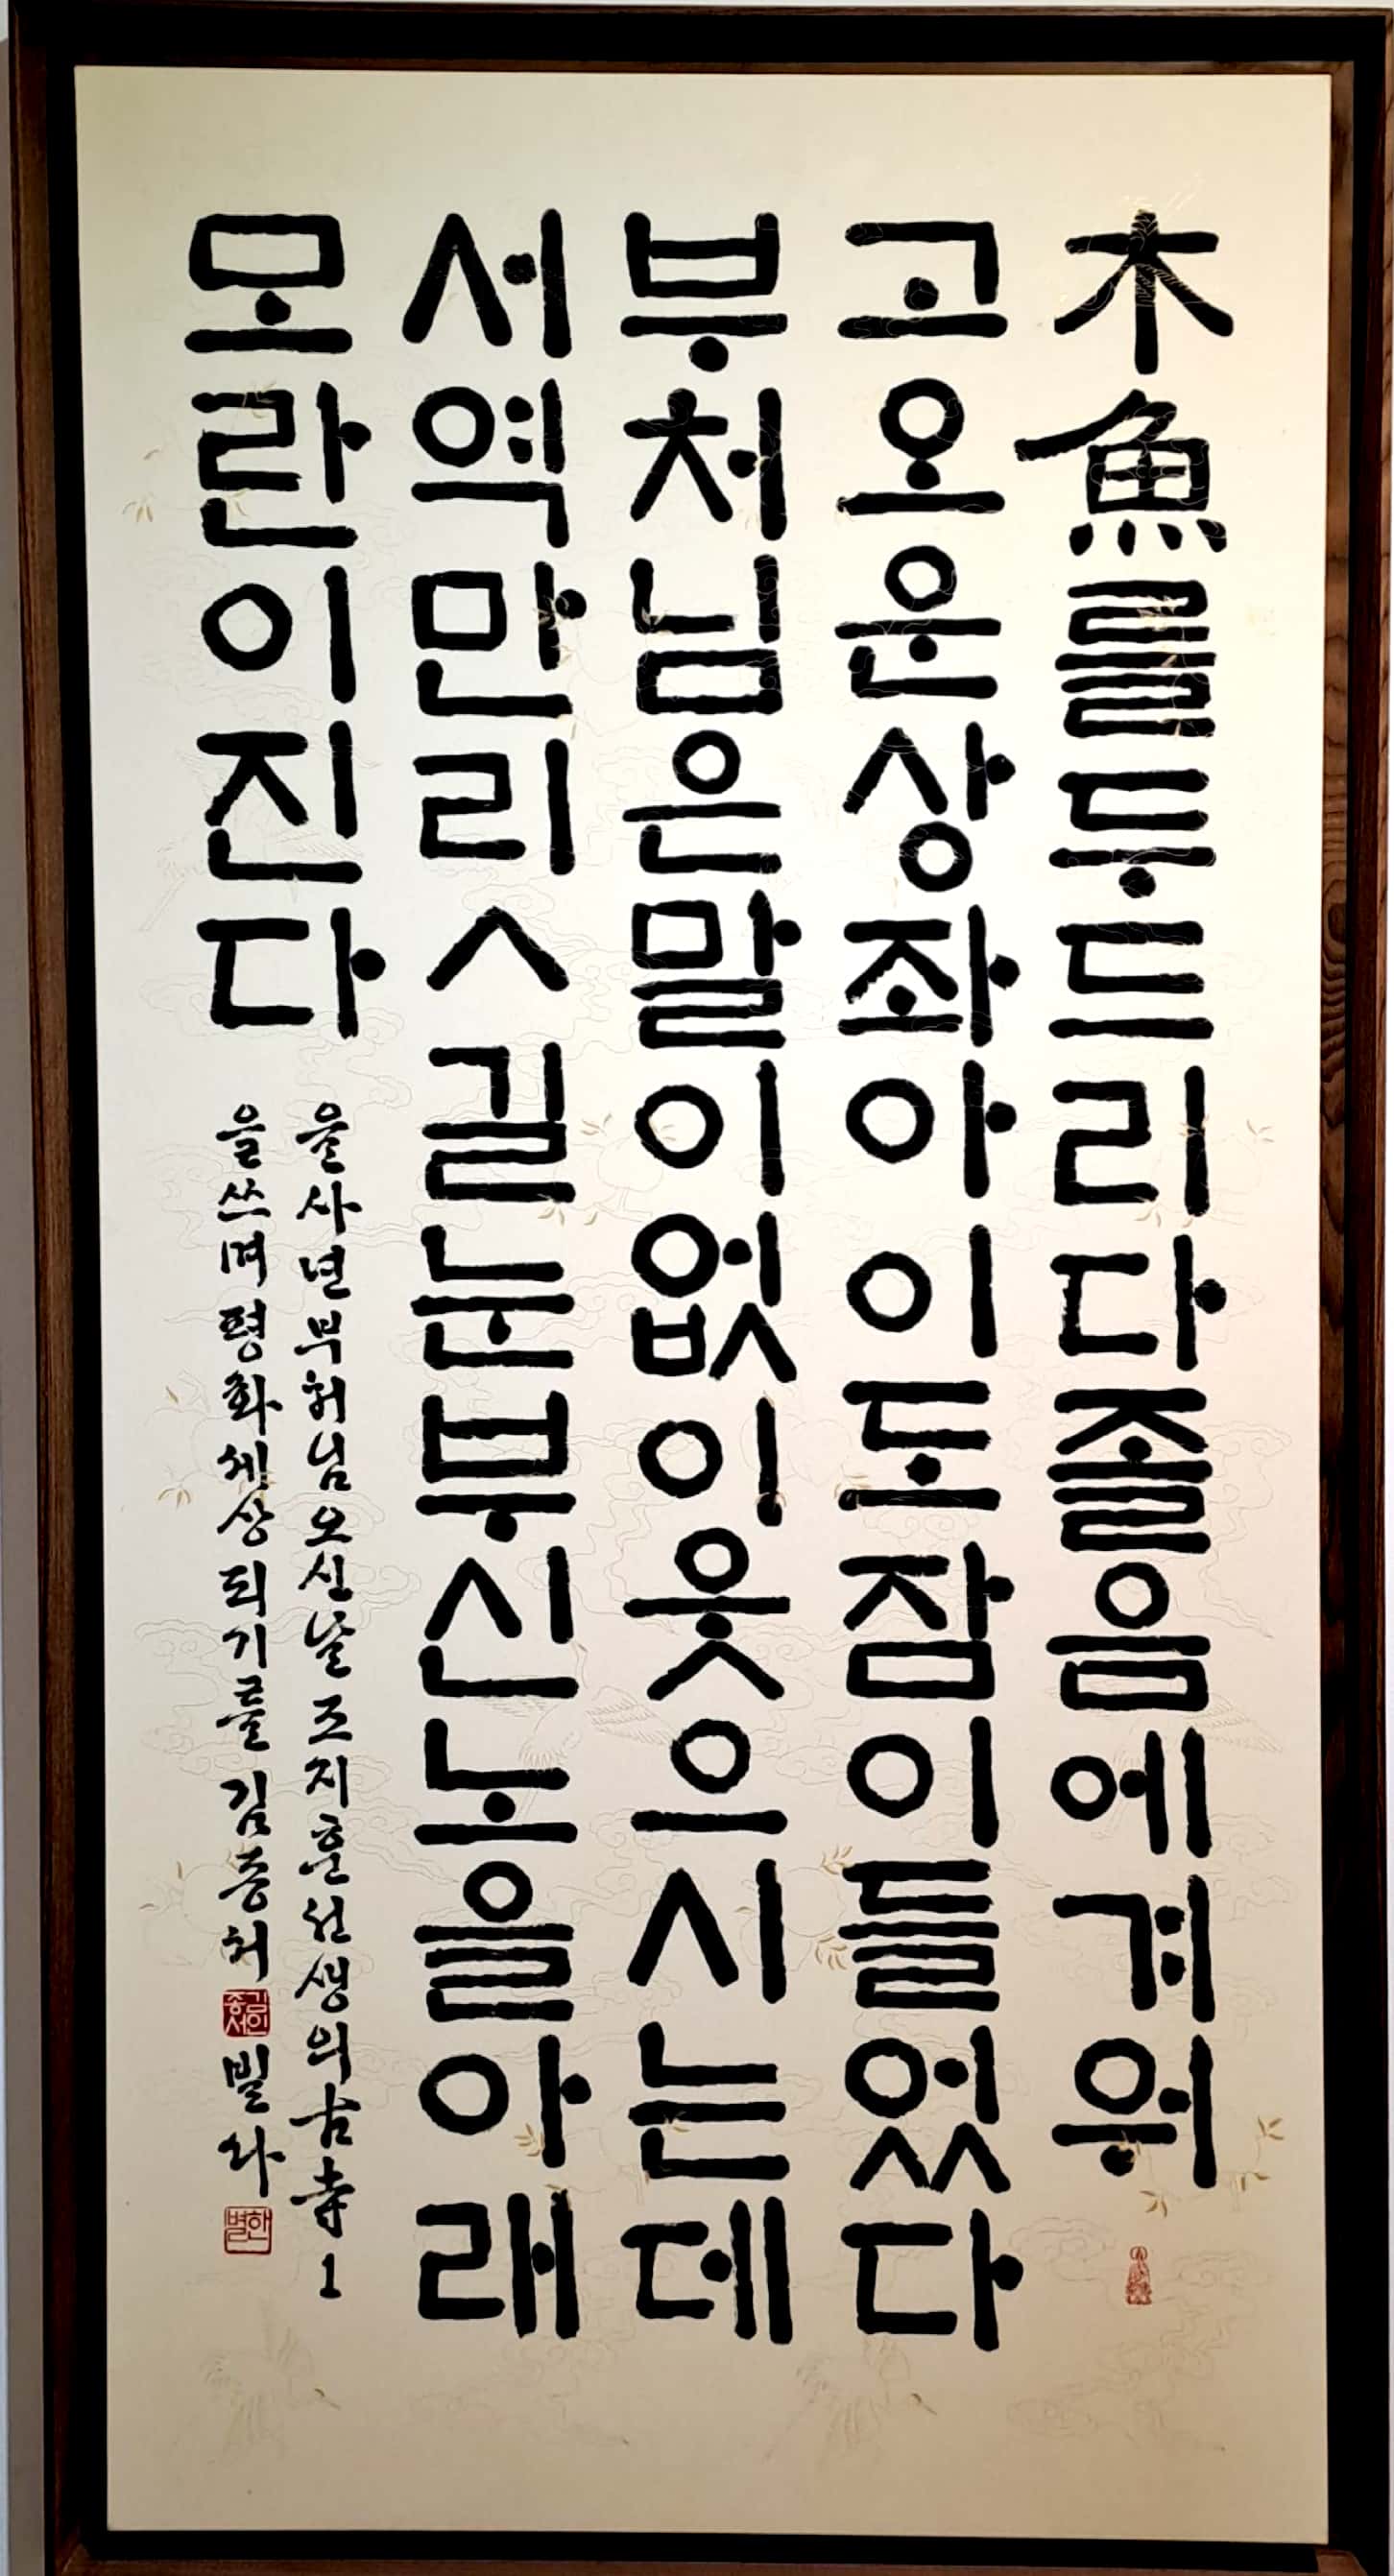 木魚를두드리다졸음에겨워
고오운상좌아이도잠이들었다
부처님은말이없이웃으시는데
서역만리ㅅ길눈부신노을아래
모란이진다
을사년부처님오신날조지훈선생의古寺1
을쓰며평화세상되기를 김종서 빌다
한별